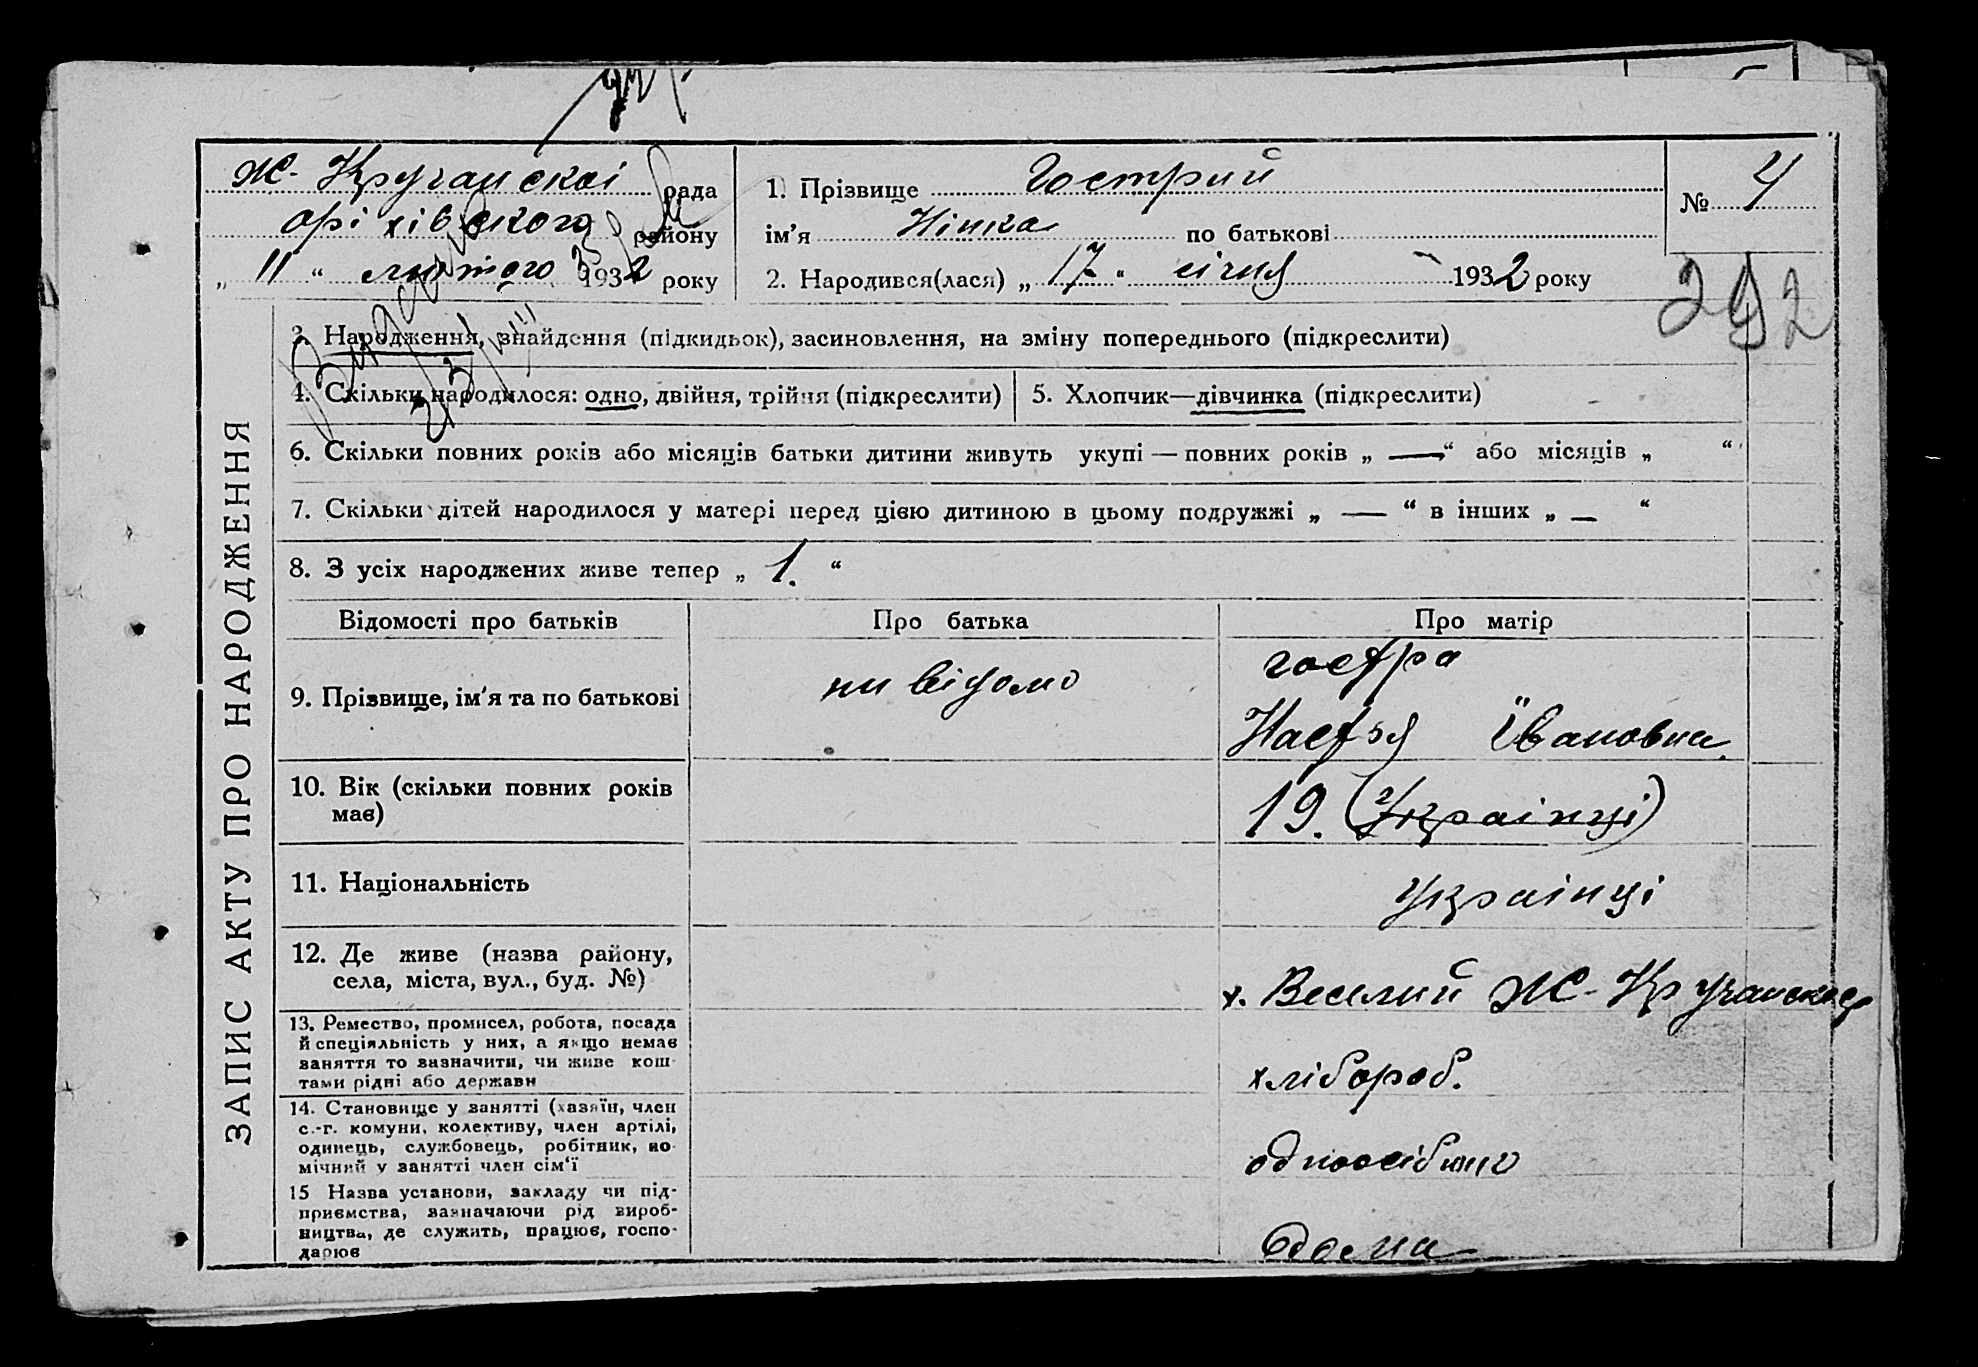 Ж- Кручанскоі рада
оріхівского району
„ 11 “ лютого 1932 року
1. Прізвище Гострий
ім’я Нінка по батькові
2. Народився(лася) „ 17 “ січня 1932 року
№ 4
292
Видано
ЗАПИС АКТУ ПРО НАРОДЖЕННЯ
3. Народження, знайдення (підкидьок), засиновлення, на зміну попереднього (підкреслити)
4. Скільки народилося: одно, двійня, трійня (підкреслити)
5. Хлопчик—дівчинка (підкреслити)
6. Скільки повних років або місяців батьки дитини живуть укупі — повних років „ — “ або місяців „ “
7. Скільки дітей народилося у матері перед цією дитиною в цьому подружжі „ — “ в інших „ — “
8. З усіх народжених живе тепер „ 1. “
Відомості про батьків
Про батька
Про матір
9. Прізвище, ім'я та по батькові
ни відомо
гостра
Настя Івановна
10. Вік (скільки повних років
має)
19. (Украінці)
11. Національність
Украінці
12. Де живе (назва району,
села, міста, вул., буд. №)
х. Веселий Ж- Кручанскоі
13. Ремество, промисел, робота, посада
й спеціяльність у них, а якщо немає
заняття то зазначити, чи живе кош-
тами рідні або держави
хлібороб.
14. Становище у занятті (хазяїн, член
с.-г. комуни, колективу, член артілі,
одинець, службовець, робітник, по-
мічний у занятті член сім'ї
одноосібно
15 Назва установи, закладу чи під-
приємства, зазначаючи рід вироб-
ництва, де служить, працює, госпо-
дарює
вдома